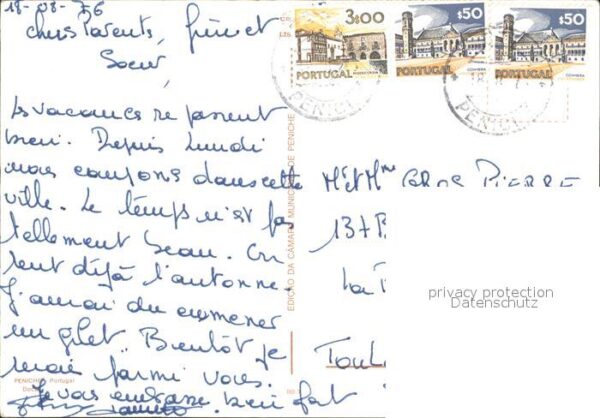 18-08-76
Chers Parents, frère et
Soeur,
Les vacances se passent
bien. Depuis Lundi
nous campons dans cette
ville. Le temps n'est pas
tellement beau. On
sent déjà l'automne.
J'aurai du emmener
un gilet. Bientôt je
serai parmi vous.
Je vous embrasse bien fort
3$00
PORTUGAL
$50
PORTUGAL
COIMBRA
$50
PORTUGAL
COIMBRA
PENICHE
PENICHE
EDIÇÃO DA CÂMARA MUNICIPAL DE PENICHE
M et Mme PIERRE
137
La
Toul
privacy protection
Datenschutz
PENICHE Portugal